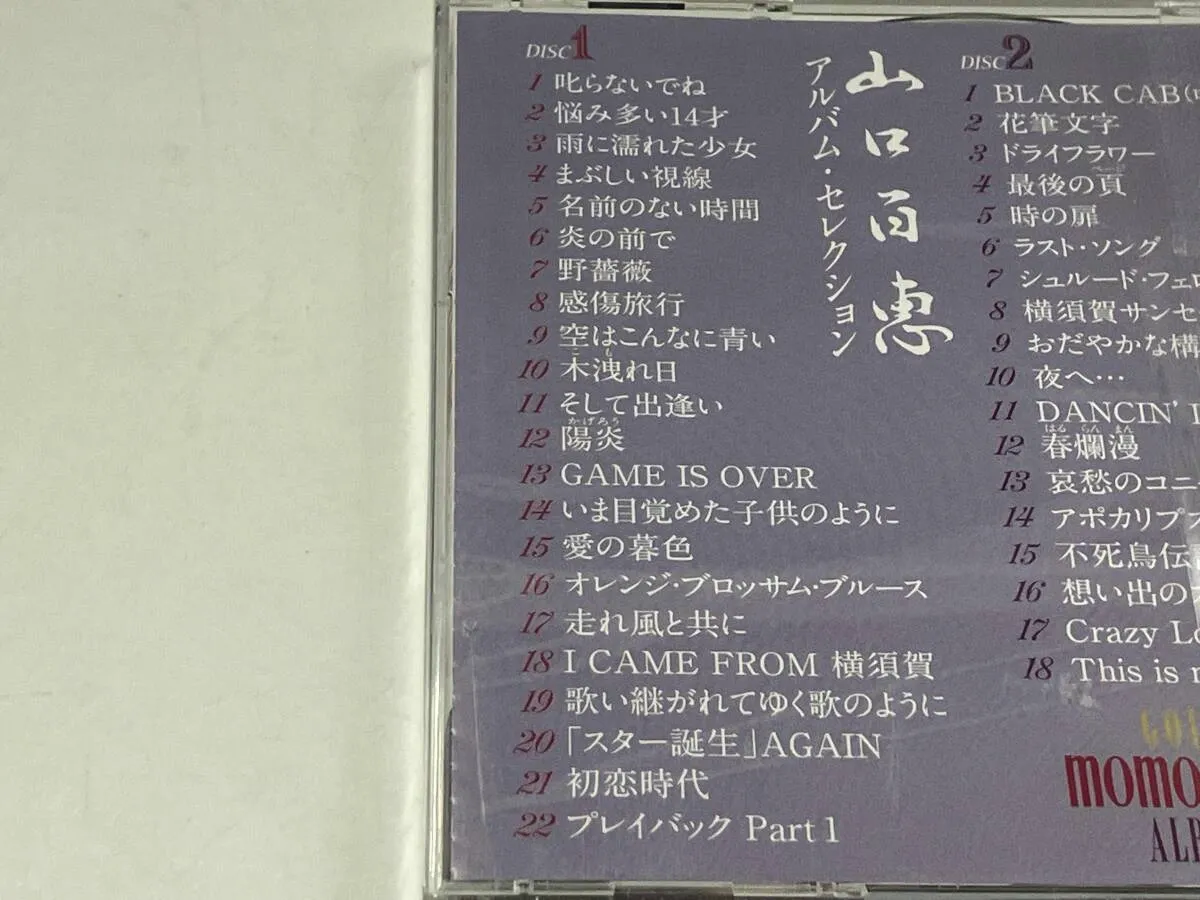 DISC1
1 叱らないでね
2 悩み多い14才
3 雨に濡れた少女
4 まぶしい視線
5 名前のない時間
6 炎の前で
7 野薔薇
8 感傷旅行
9 空はこんなに青い
10 木洩れ日
こも
11 そして出逢い
12 陽炎
かげろう
13 GAME IS OVER
14 いま目覚めた子供のように
15 愛の暮色
16 オレンジ・ブロッサム・ブルース
17 走れ風と共に
18 I CAME FROM 横須賀
19 歌い継がれてゆく歌のように
20 「スター誕生」AGAIN
21 初恋時代
22 プレイバック Part 1
山口百恵
アルバム・セレクション
DISC2
1 BLACK CAB
2 花筆文字
3 ドライフラワー
4 最後の頁
5 時の扉
6 ラスト・ソング
7 シュルード・フェロ
8 横須賀サンセ
9 おだやかな構
10 夜へ…
11 DANCIN'
12 春爛漫
はるらんまん
13 哀愁のコニ
14 アポカリプス
15 不死鳥伝
16 想い出の
17 Crazy L
18 This is
GO
momo
AL